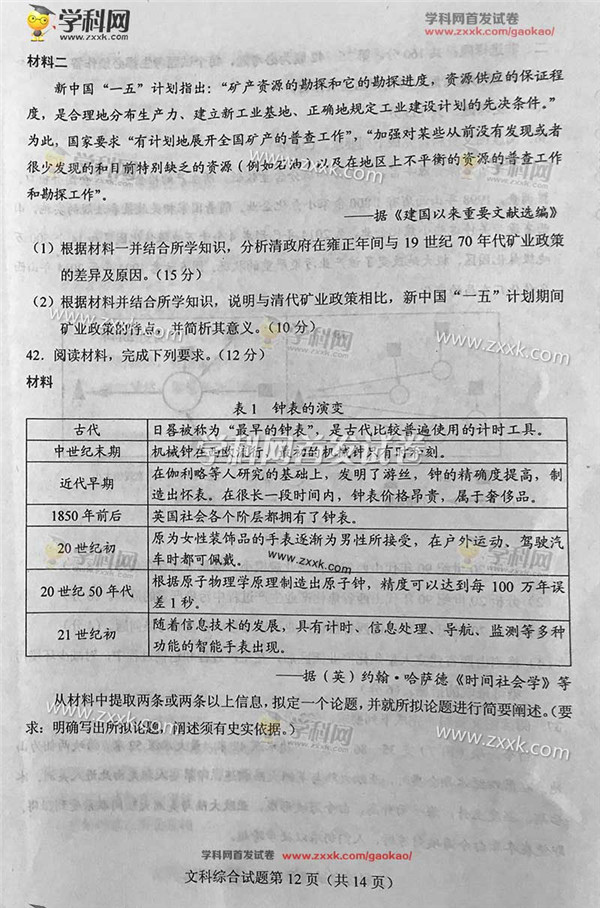 学科网
www.zxxk.com
学科网首发试卷
www.zxxk.com/gaokao/
材料二
新中国“一五”计划指出：“矿产资源的勘探和它的勘探进度，资源供应的保证程
度，是合理地分布生产力、建立新工业基地、正确地规定工业建设计划的先决条件。”
为此，国家要求“有计划地展开全国矿产的普查工作”，“加强对某些从前没有发现或者
很少发现的和目前特别缺乏的资源（例如石油）以及在地区上不平衡的资源的普查工作
和勘探工作”。
——据《建国以来重要文献选编》
（1）根据材料一并结合所学知识，分析清政府在雍正年间与 19 世纪 70 年代矿业政策
的差异及原因。（15 分）
（2）根据材料并结合所学知识，说明与清代矿业政策相比，新中国“一五”计划期间
矿业政策的特点，并简析其意义。（10 分）
42．阅读材料，完成下列要求。（12 分）
材料
表 1 钟表的演变
古代 日晷被称为“最早的钟表”，是古代比较普遍使用的计时工具。
中世纪末期 机械钟在西欧流行，最初的机械钟只有时刻。
近代早期 在伽利略等人研究的基础上，发明了游丝，钟的精确度提高，制
造出怀表。在很长一段时间内，钟表价格昂贵，属于奢侈品。
1850 年前后 英国社会各个阶层都拥有了钟表。
20 世纪初 原为女性装饰品的手表逐渐为男性所接受，在户外运动、驾驶汽
车时都可佩戴。
20 世纪 50 年代 根据原子物理学原理制造出原子钟，精度可以达到每 100 万年误
差 1 秒。
21 世纪初 随着信息技术的发展，具有计时、信息处理、导航、监测等多种
功能的智能手表出现。
——据（英）约翰·哈萨德《时间社会学》等
从材料中提取两条或两条以上信息，拟定一个论题，并就所拟论题进行简要阐述。（要
求：明确写出所拟论题，阐述须有史实依据。）
学科网首发试卷 www.zxxk.com/gaokao/
文科综合试题第 12 页（共 14 页）